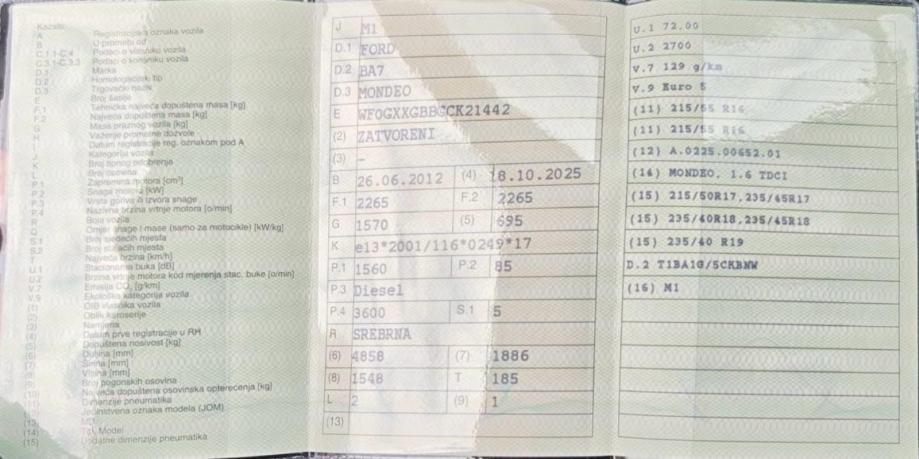 Kazalo:
A Registracijska oznaka vozila
B U prometu od
C.1.1-C.4 Podaci o vlasniku vozila
C.3.1-C.3.3 Podaci o korisniku vozila
D.1 Marka
D.2 Homologacijski tip
D.3 Trgovački naziv
E Broj šasije
F.1 Tehnička najveća dopuštena masa [kg]
F.2 Najveća dopuštena masa [kg]
G Masa praznog vozila [kg]
H Važenje prometne dozvole
Datum registracije reg. oznakom pod A
J Kategorija vozila
K Broj tipnog odobrenja
L Broj osovina
P.1 Zapremina motora [cm³]
P.2 Snaga motora [kW]
P.3 Vrsta goriva ili izvora snage
P.4 Nazivna brzina vrtnje motora [o/min]
R Boja vozila
Q Omjer snage i mase (samo za motocikle) [kW/kg]
S.1 Broj sjedećih mjesta
S.2 Broj stajaćih mjesta
T Najveća brzina [km/h]
U.1 Stacionarna buka [dB]
U.2 Brzina vrtnje motora kod mjerenja stac. buke [o/min]
V.7 Emisija CO₂ [g/km]
V.9 Ekološka kategorija vozila
(1) OIB vlasnika vozila
(2) Oblik karoserije
(3) Namjena
(4) Datum prve registracije u RH
(5) Dopuštena nosivost [kg]
(6) Dužina [mm]
(7) Širina [mm]
(8) Visina [mm]
(9) Broj pogonskih osovina
(10) Najveća dopuštena osovinska opterećenja [kg]
(11) Dimenzije pneumatika
(12) Jedinstvena oznaka modela (JOM)
(13)
(14) Tip, Model
(15) Dodatne dimenzije pneumatika
J M1
D.1 FORD
D.2 BA7
D.3 MONDEO
E WF0GXXGBBGCK21442
(2) ZATVORENI
(3) -
B 26.06.2012 (4) 18.10.2025
F.1 2265 F.2 2265
G 1570 (5) 695
K e13*2001/116*0249*17
P.1 1560 P.2 85
P.3 Diesel
P.4 3600 S.1 5
R SREBRNA
(6) 4858 (7) 1886
(8) 1548 T 185
L 2 (9) 1
(13)
U.1 72.00
U.2 2700
V.7 129 g/km
V.9 Euro 5
(11) 215/55 R16
(11) 215/55 R16
(12) A.0225.00652.01
(14) MONDEO, 1.6 TDCI
(15) 215/50R17,235/45R17
(15) 235/40R18,235/45R18
(15) 235/40 R19
D.2 T1BA1G/5CKBNW
(16) M1